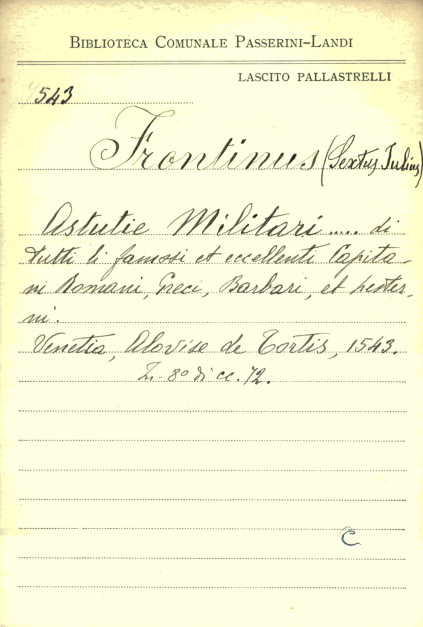 BIBLIOTECA COMUNALE PASSERINI-LANDI
LASCITO PALLASTRELLI
543
Frontinus (Sextus Julius)
Astutie Militari ..... di
tutti li famosi et eccellenti Capita-
ni Romani, Greci, Barbari, et hester-
ni.
Venetia, Alovise de Tortis, 1543.
In-8º di cc. 72.
C